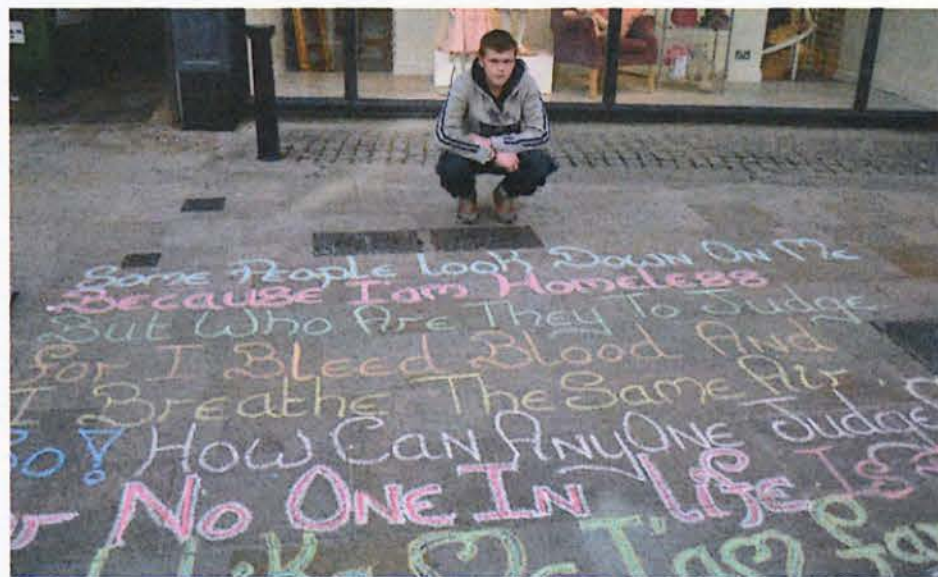 Some People Look Down On Me
Because I am Homeless
But Who Are They To Judge
for I Bleed Blood And
I Breathe The Same Air.
So! How Can Anyone Judge
No One In Life Is
Like Me I'am